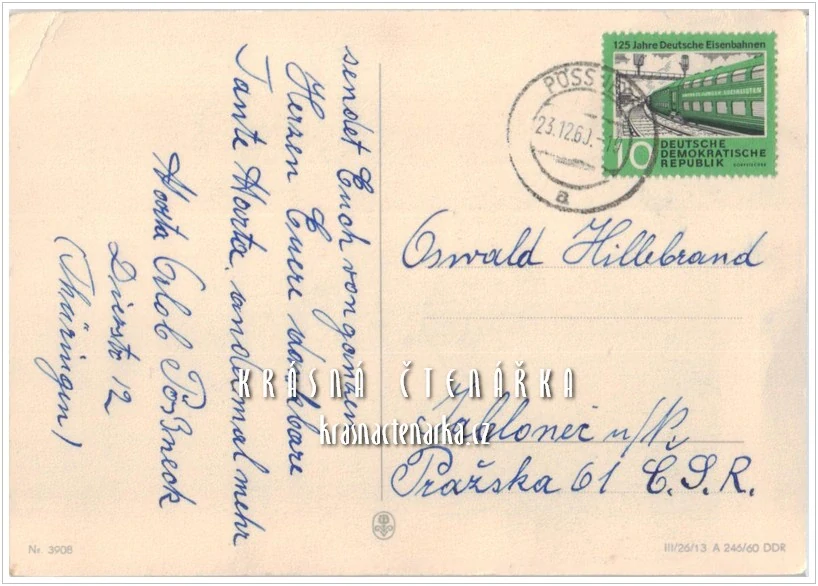 sendet Euch von ganzem
Herzen Euere dankbare
Tante Herta, andermal mehr
Herta Orlob Pößneck
Dierstr 12
(Thüringen)
125 Jahre Deutsche Eisenbahnen
10 DEUTSCHE
DEMOKRATISCHE
REPUBLIK
PÖSSNECK
23.12.60.
a
Oswald Hillebrand
Jablonec n/N.
Pražska 61 Č.S.R.
KRÁSNÁ ČTENÁŘKA
krasnactenarka.cz
Nr. 3908
III/26/13 A 246/60 DDR